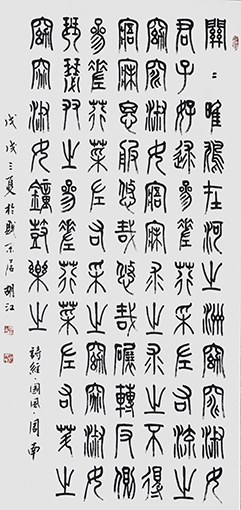 關〻雎鳩在河之洲窈窕淑女
君子好逑參差荇菜左右流之
窈窕淑女寤寐求之求之不得
寤寐思服悠哉悠哉輾轉反側
參差荇菜左右采之窈窕淑女
琴瑟友之參差荇菜左右芼之
窈窕淑女鐘鼓樂之
詩經·國風·周南
戊戌之夏於京居胡江